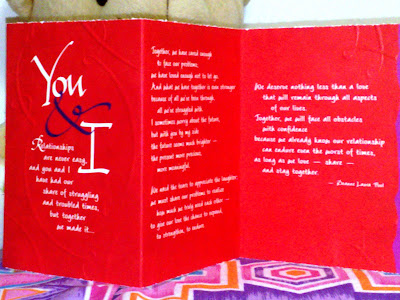 You
&
I
Relationships
are never easy,
and you and I
have had our
share of struggling
and troubled times,
but together
we made it...
Together, we have cared enough
to face our problems;
we have loved enough not to let go.
And what we have together is now stronger
because of all we've been through,
all we've struggled with.
I sometimes worry about the future,
but with you by my side
the future seems much brighter —
the present more precious,
more meaningful.
We need the tears to appreciate the laughter;
we must share our problems to realize
how much we truly need each other —
to give our love the chance to expand,
to strengthen, to endure.
We deserve nothing less than a love
that will remain through all aspects
of our lives.
Together, we will face all obstacles
with confidence
because we already know our relationship
can endure even the worst of times,
as long as we love — share —
and stay together.
— Deanne Laura